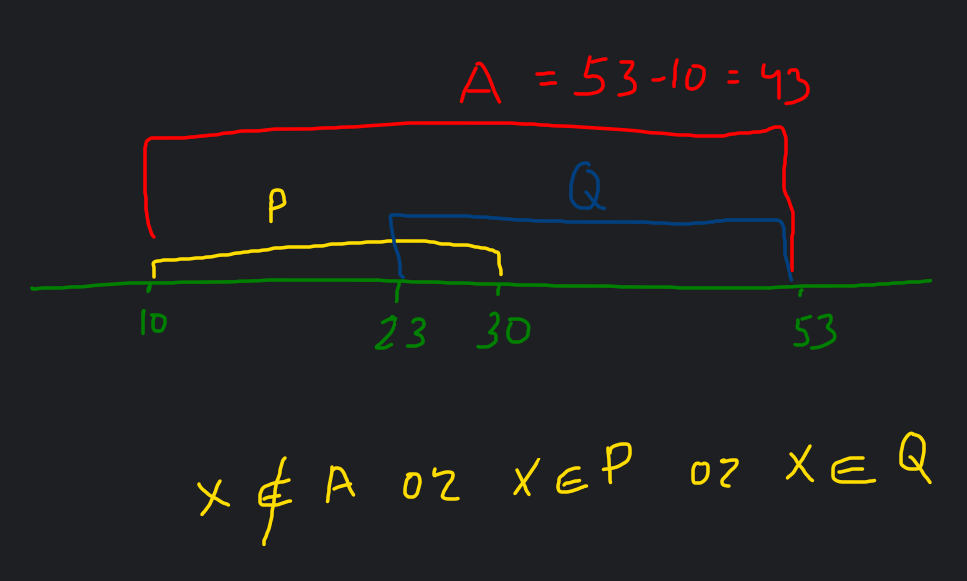 A = 53-10 = 43
Q
P
10 23 30 53
x ∉ A or x ∈ P or x ∈ Q